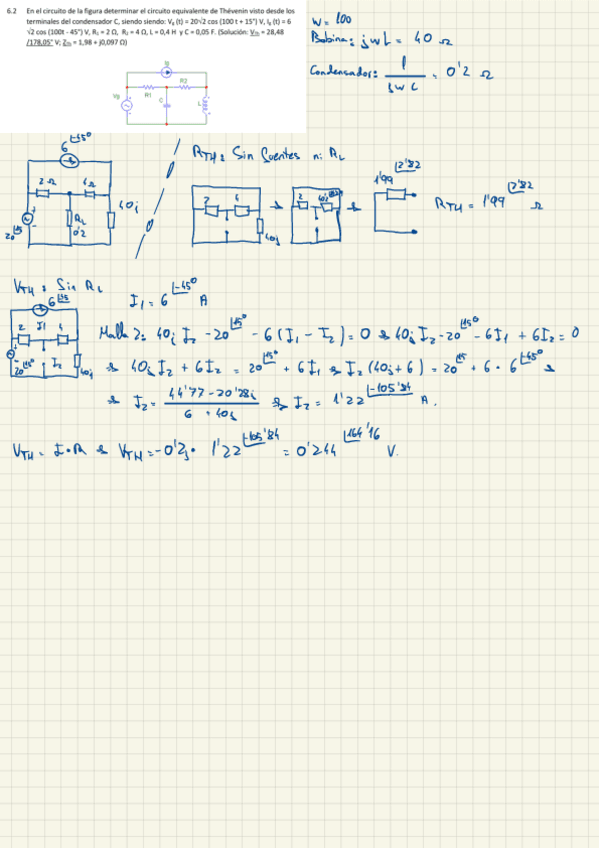 6.2 En el circuito de la figura determinar el circuito equivalente de Thévenin visto desde los
terminales del condensador C, siendo siendo: Vg (t) = 20√2 cos (100 t + 15°) V, Ig (t) = 6
√2 cos (100t - 45°) V, R₁ = 2 Ω, R₂ = 4 Ω, L = 0,4 H y C = 0,05 F. (Solución: V_Th = 28,48
/178,05° V; Z_Th = 1,98 + j0,097 Ω)
Vg
R1
C
R2
L
W = 100
Bobina: jwL = 40 Ω
Condensador: 1/jwC = 0'2 Ω
6 |-45°
2Ω
4Ω
40j
RL
0'2
20 |15
RTH: Sin fuentes ni RL
2
4
40j
2
1'99 |2'82
RTH = 1'99 |2'82 Ω
VTH: Sin RL
6 |-45
2 I1 4
20 |15° I2 40j
I1 = 6 |-45° A
Malla 2: 40j I2 - 20 |15° - 6 (I1 - I2) = 0 40j I2 - 20 |15° - 6I1 + 6I2 = 0
40j I2 + 6I2 = 20 |15° + 6I1 I2 (40j + 6) = 20 |15 + 6 · 6 |-45°
I2 = 44'77 - 20'28j / 6 + 40j I2 = 1'22 |-105'84 A.
VTH = I · R VTH = -0'2j · 1'22 |-105'84 = 0'244 |164'16 V.